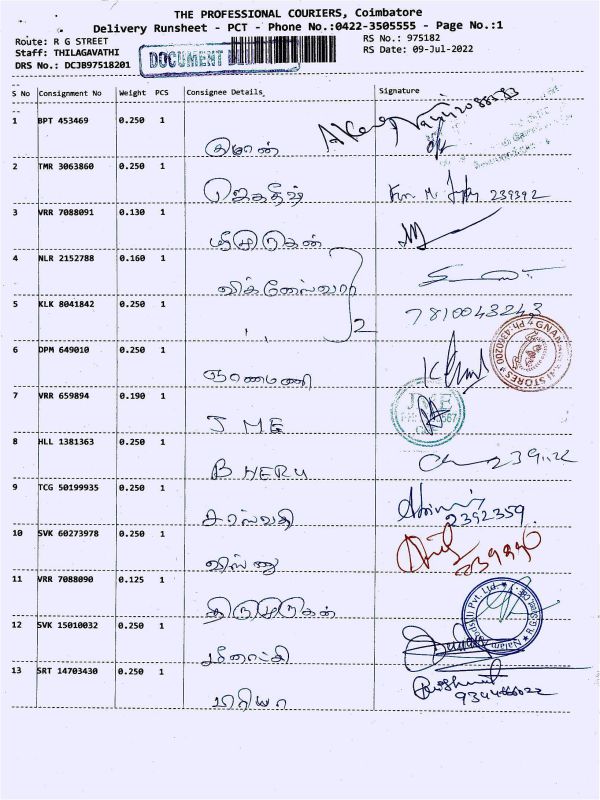 THE PROFESSIONAL COURIERS, Coimbatore
Delivery Runsheet - PCT - Phone No.:0422-3505555 - Page No.:1
Route: R G STREET
RS No.: 975182
Staff: THILAGAVATHI
RS Date: 09-Jul-2022
DRS No.: DCJB97518201
DOCUMENT
S No Consignment No Weight PCS Consignee Details Signature
1 BPT 453469 0.250 1
குமரன்
2 TMR 3063860 0.250 1
ஜெகதீஷ் 239392
3 VRR 7088091 0.130 1
4 NLR 2152788 0.160 1
விக்னேஸ்வரா
5 KLK 8041842 0.250 1
2 7810043243
6 DPM 649010 0.250 1
ஞானமணி
STORES
7 VRR 659894 0.190 1
J M E
8 HLL 1381363 0.250 1
B HERU
9 TCG 50199935 0.250 1
சரஸ்வதி 2392359
10 SVK 60273978 0.250 1
விஸ்ணு
11 VRR 7088090 0.125 1
திருமுருகன்
12 SVK 15010032 0.250 1
மீனாட்சி
13 SRT 14703430 0.250 1
பிரியா